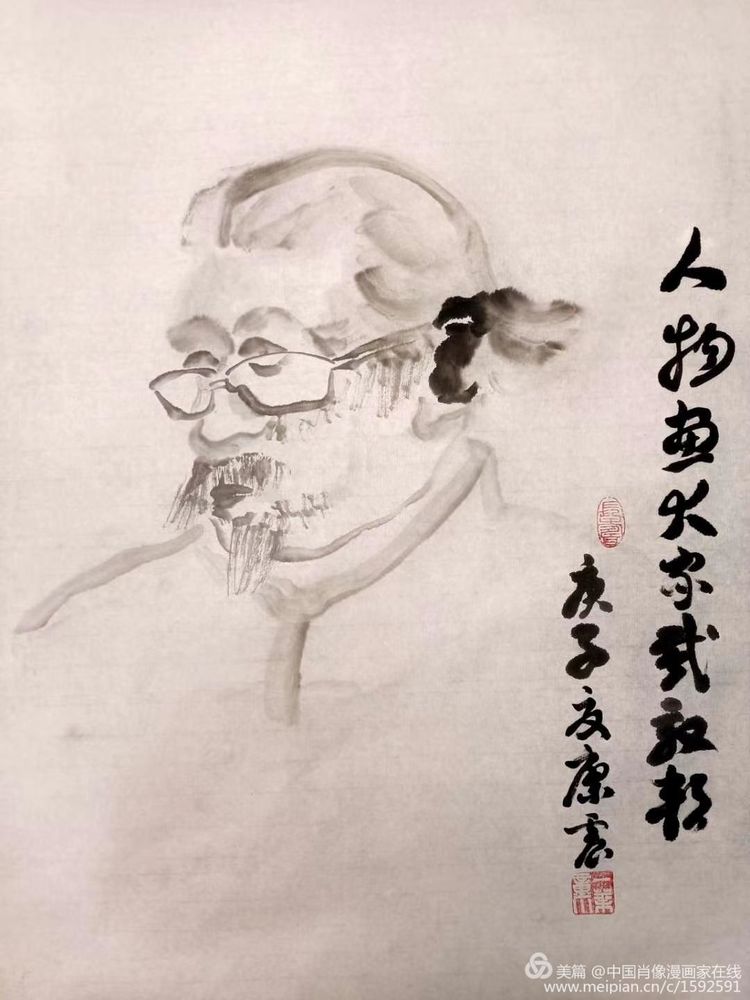 人物画大家戴敦邦
庚子夏康
美篇 @中国肖像漫画家在线
www.meipian.cn/c/1592591